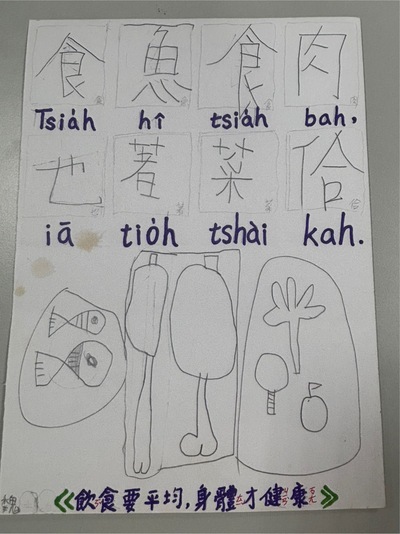 食魚食肉
Tsia̍h hî tsia̍h bah,
也著菜佮
iā tio̍h tshài kah.
《飲食要平均,身體才健康》